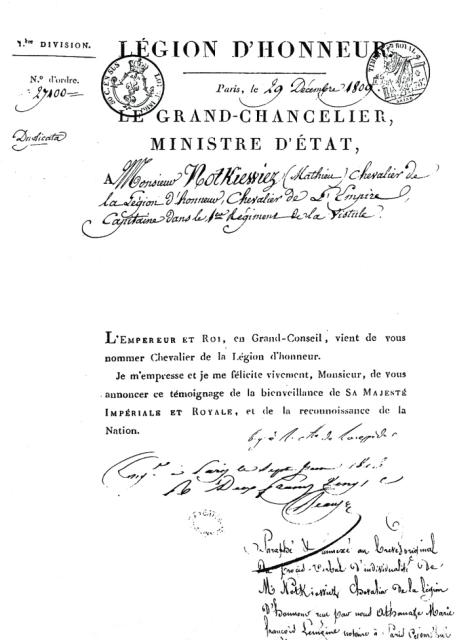 1.ère DIVISION.
LÉGION D'HONNEUR.
N.º d'ordre.
27100
Paris, le 29 Décembre 1809
LE GRAND-CHANCELIER,
Duplicata
MINISTRE D'ÉTAT,
A Monsieur Notkiewiez (Mathieu) Chevalier de
la Légion d'honneur, Chevalier de L'Empire,
Capitaine dans le 1er Régiment de la Vistule.
L'EMPEREUR ET ROI, en Grand-Conseil, vient de vous
nommer Chevalier de la Légion d'honneur.
Je m'empresse et je me félicite vivement, Monsieur, de vous
annoncer ce témoignage de la bienveillance de SA MAJESTÉ
IMPÉRIALE ET ROYALE, et de la reconnoissance de la
Nation.
à Paris le Sept
Deux francs
Paraphé & annexé au brevet original
du procès-verbal d'individualité de
M. Notkiewiez Chevalier de la légion
d'honneur par nous Athanase Marie
François notaire à Paris